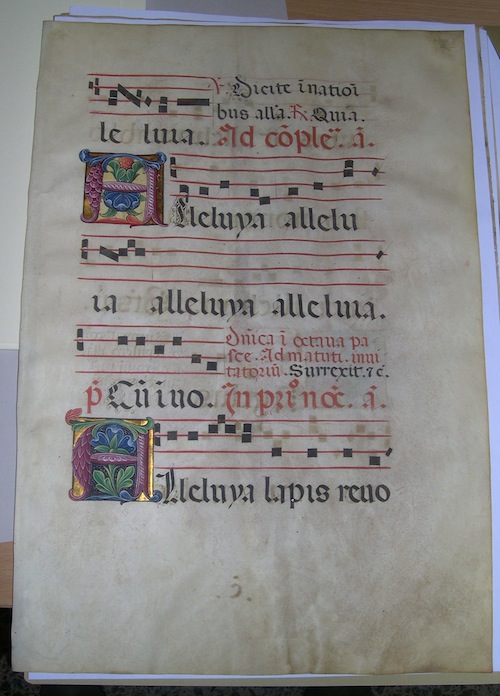 ℣. Dicite ī natiōi
bus all'a. ℟. Quia.
le luia. Ad cōple. a.
Alleluya allelu
ia alleluya alleluia.
Dn̄ica ī octava pa
sce. Ad matuti. invi
tatoriū. Surrexit. ⁊ c.
In pri⁰ noc̄. a.
Alleluya lapis revo